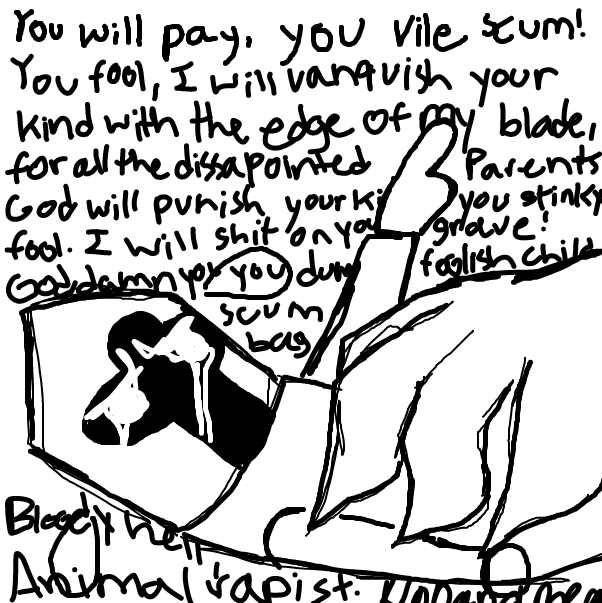 You will pay, you vile scum!
You fool, I will vanquish your
kind with the edge of my blade,
for all the dissapointed Parents
God will punish your ki you stinky
fool. I will shit on you grave!
God damn you you dum foolish child
scum
bag
Bloody hell
Animal rapist.